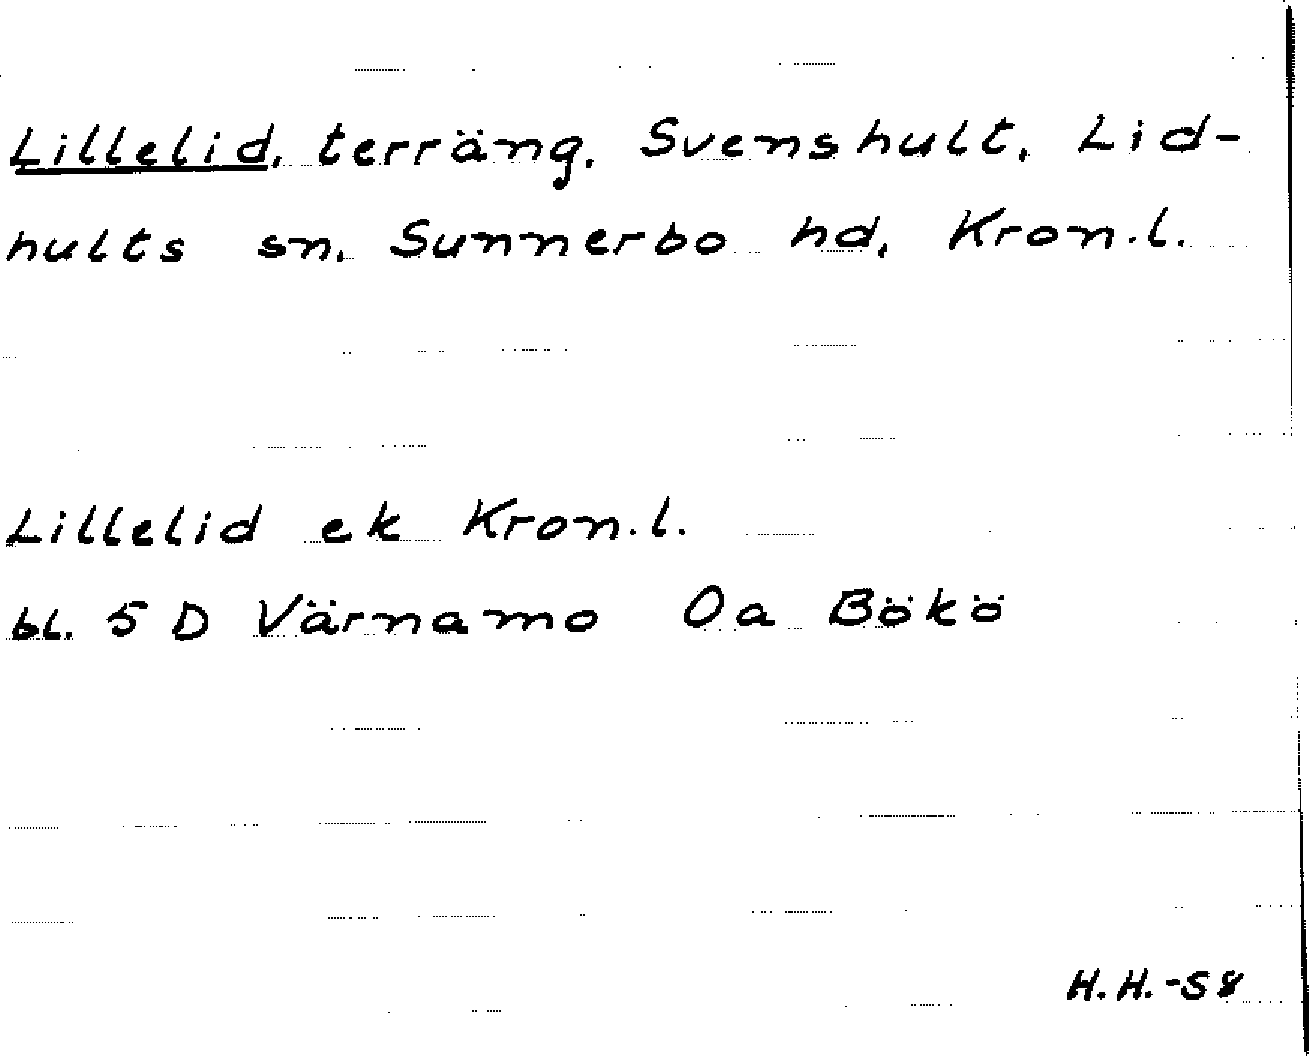 Lillelid, terräng, Svenshult, Lid-
hults sn, Sunnerbo hd, Kron.l.
Lillelid ek Kron.l.
bl. 5 D Värnamo Oa Bökö
H.H.-58